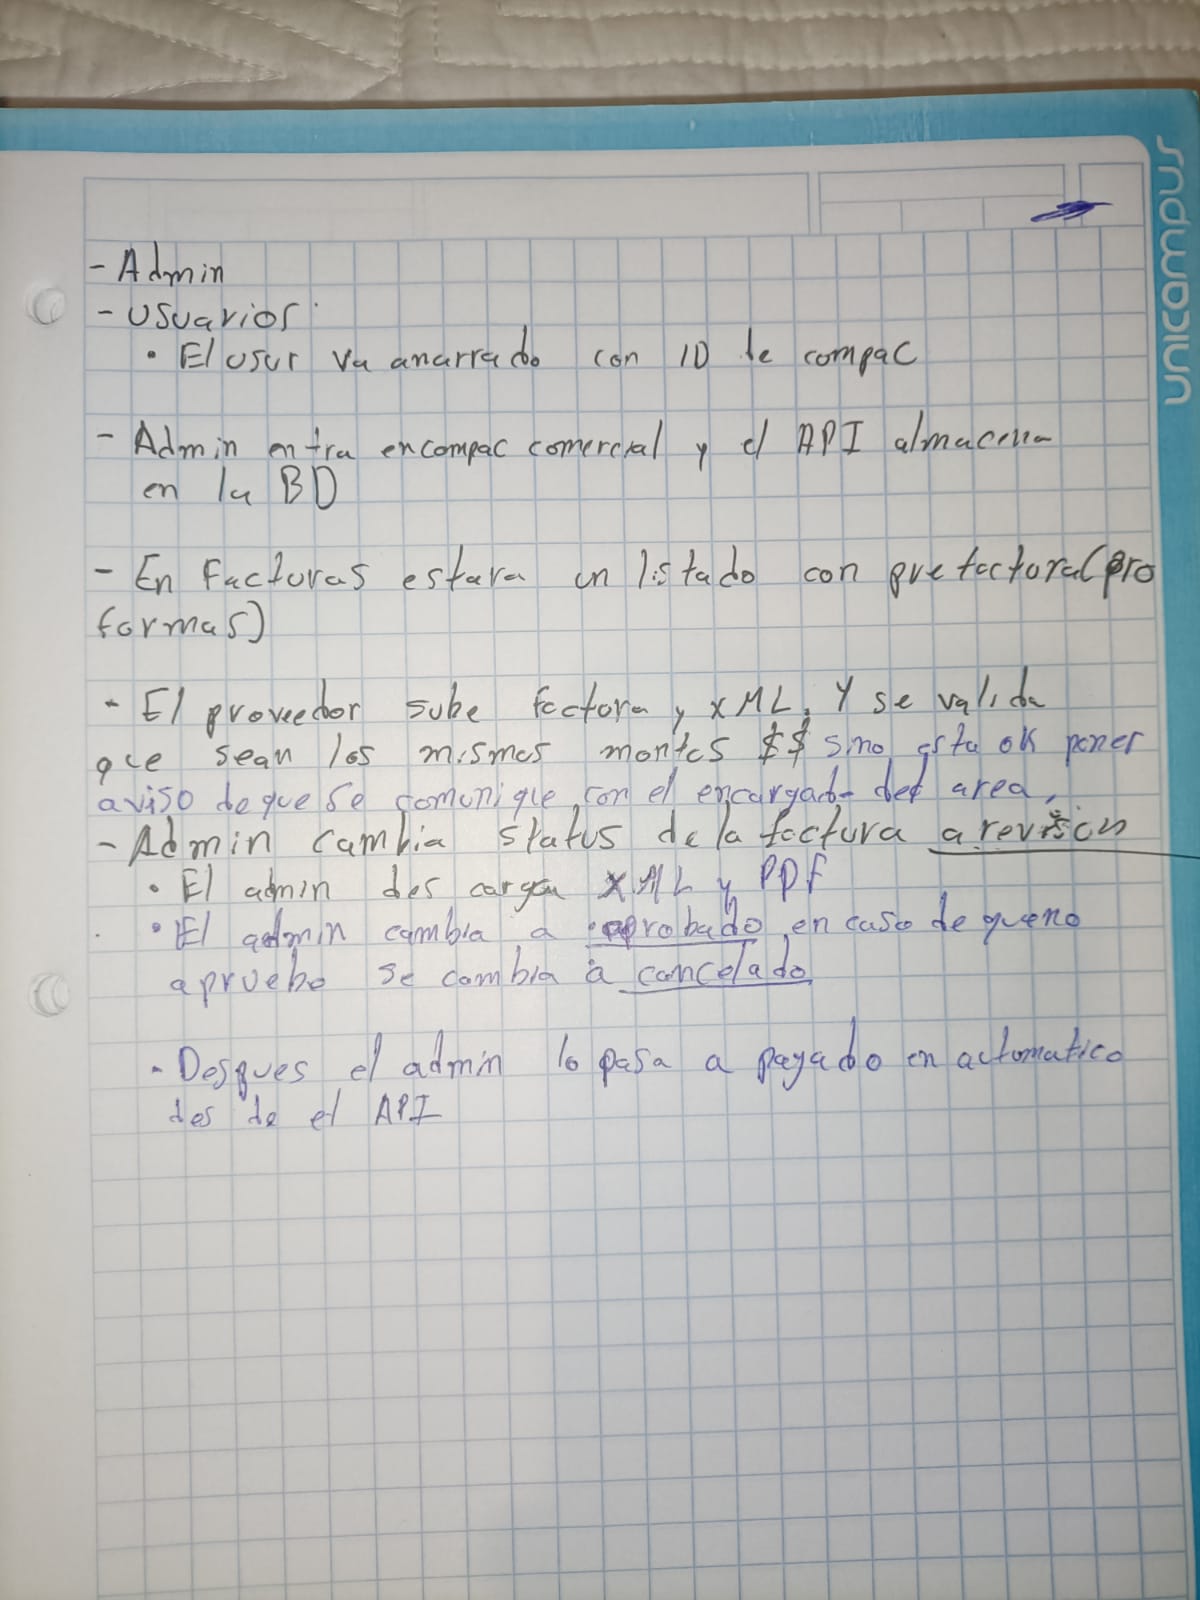 unicampus
- Admin
- Usuarios
• El usur va anarrado con ID de compac
- Admin entra en compac comercial y el API almacena
en la BD
- En Facturas estara un listado con prefactura(pro
formas)
- El proveedor sube factura y XML. Y se valida
que sean los mismos montos $$ sino esta ok poner
aviso de que se comunique con el encargado del area,
- Admin cambia status de la factura a revisión
• El admin descarga XML y PDF
• El admin cambia a aprobado en caso de que no
apruebe se cambia a cancelado
- Despues el admin lo pasa a pagado en automatico
desde el API